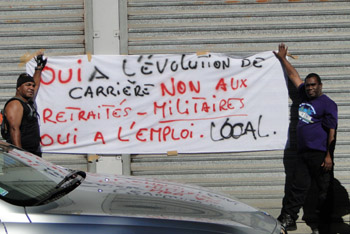 OUI A L'ÉVOLUTION DE
CARRIÈRE NON AUX
RETRAITÉS - MILITAIRES
OUI A L'EMPLOI. LOCAL.